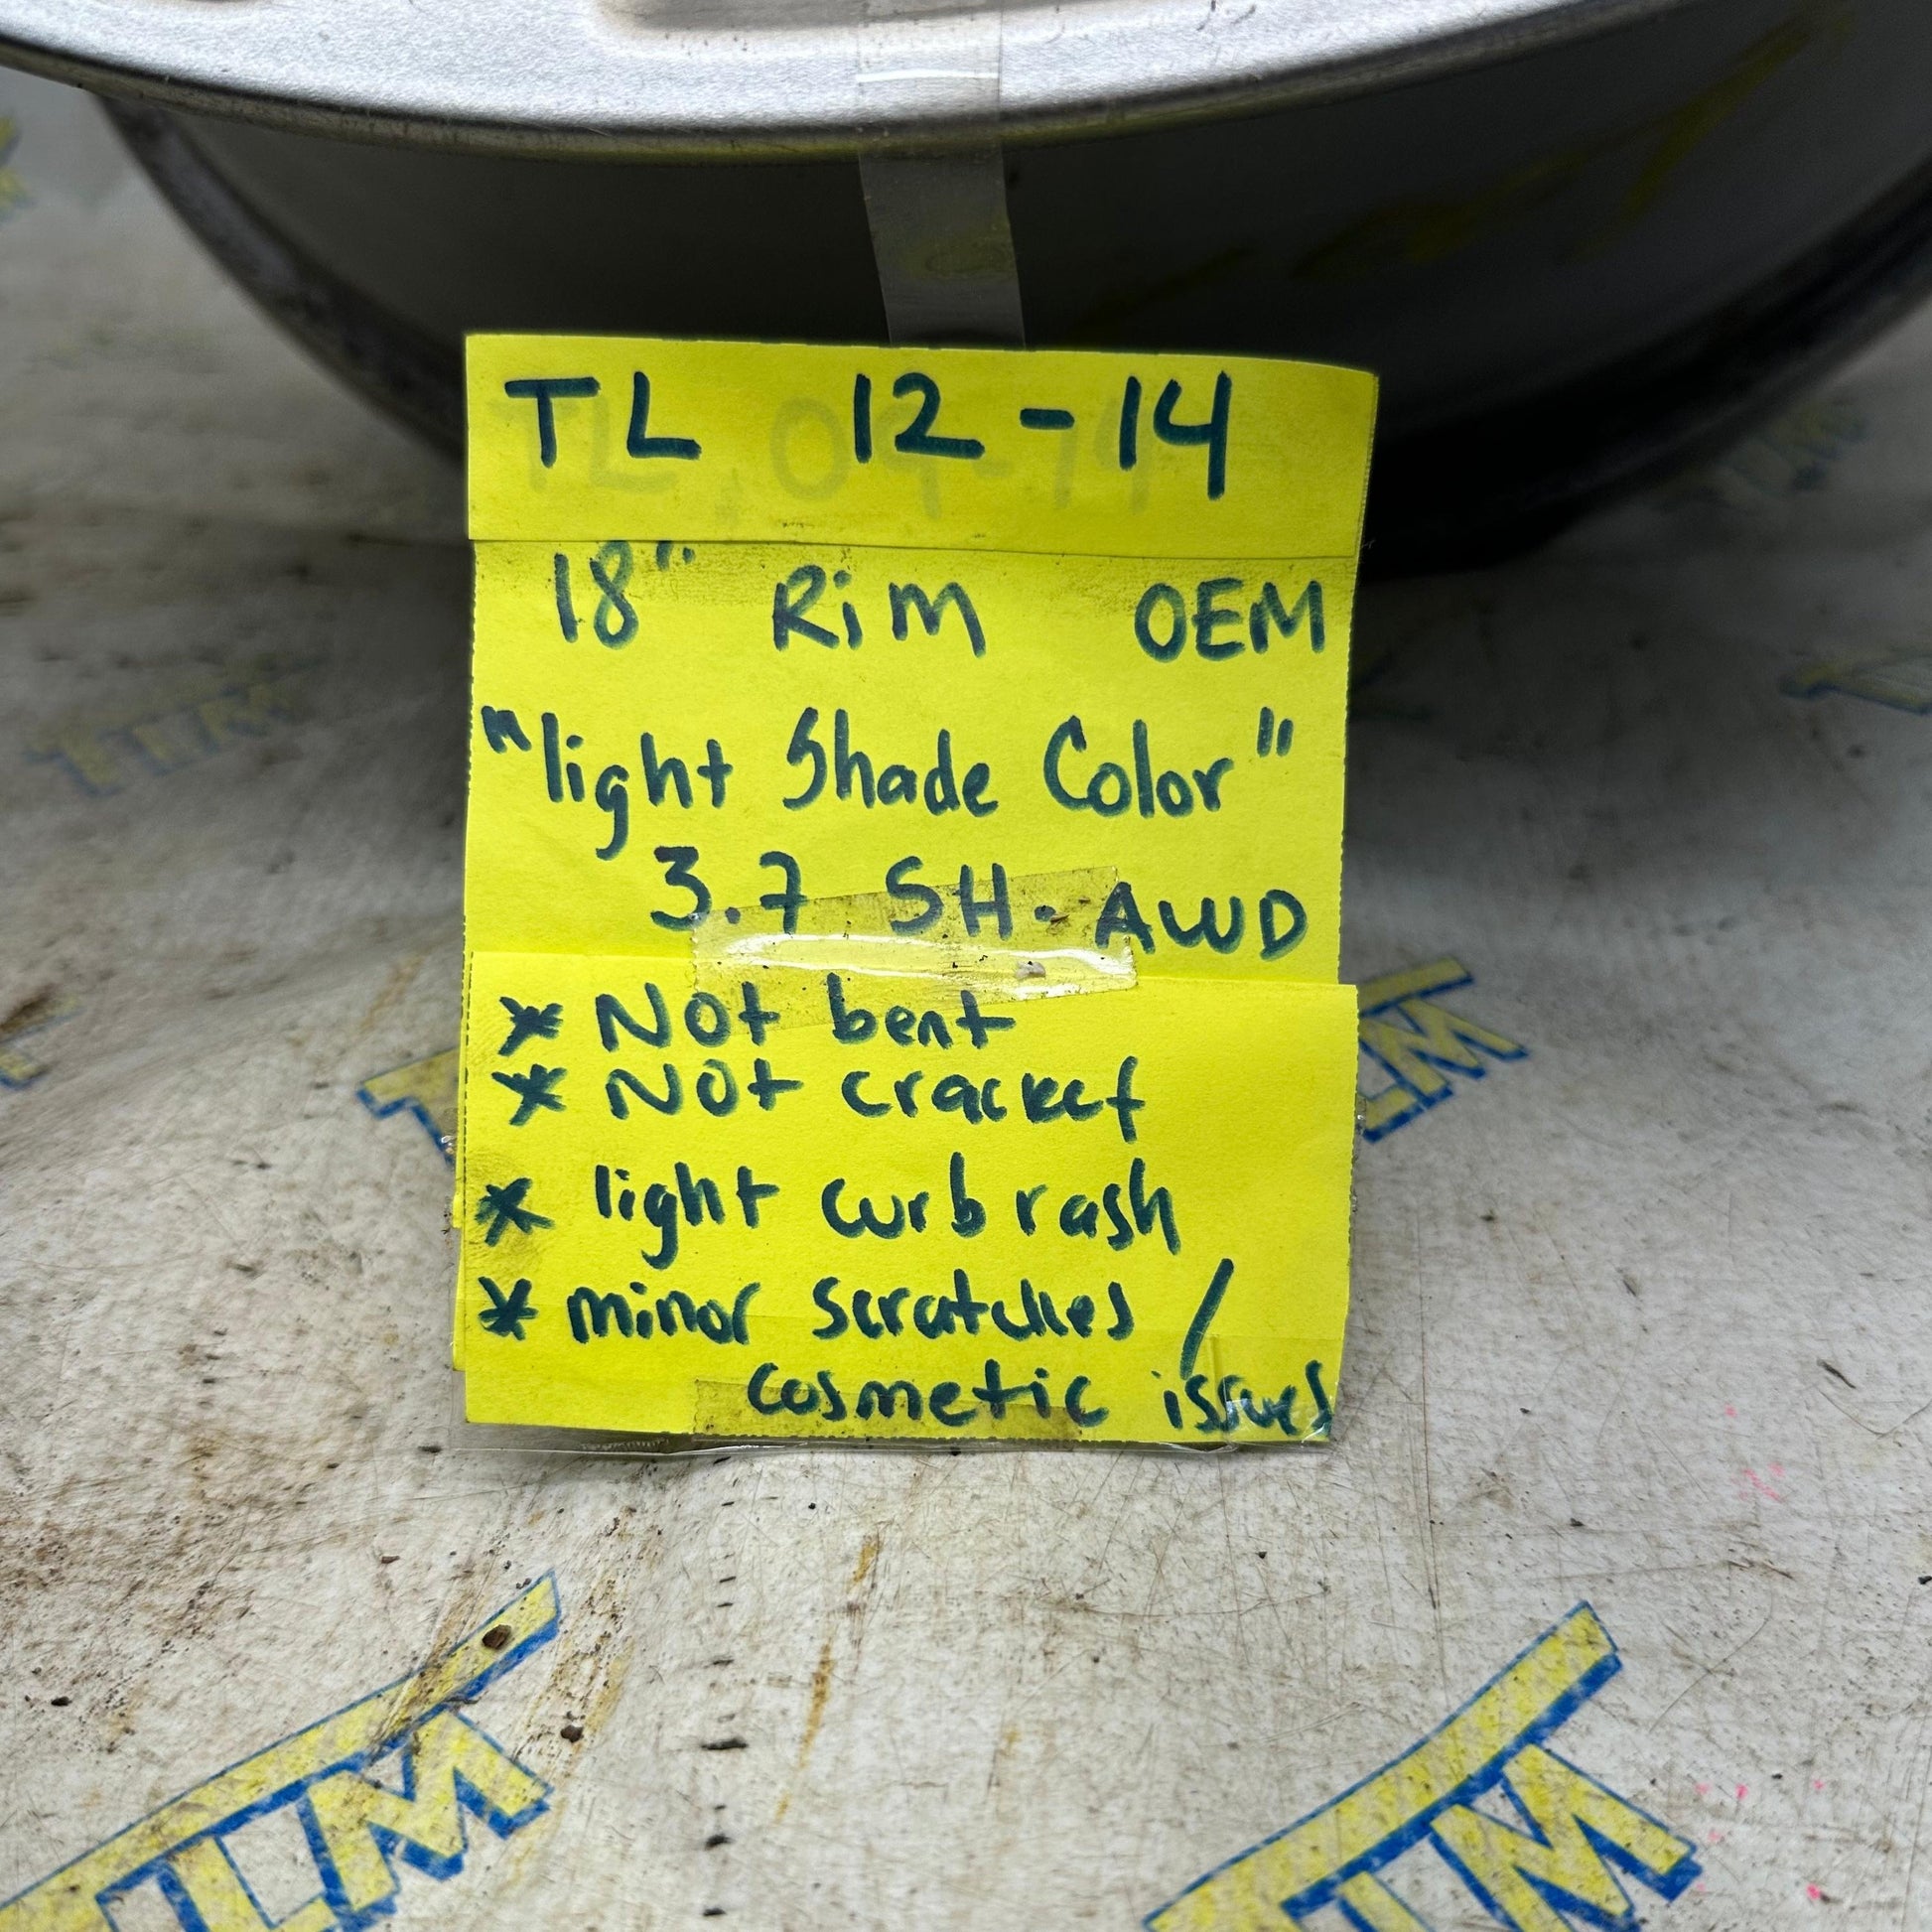 TL 12-14
18" Rim OEM
"light Shade Color"
3.7 SH-AWD
* Not bent
* Not cracked
* light curb rash
* minor scratches /
cosmetic issues
TLM
TLM